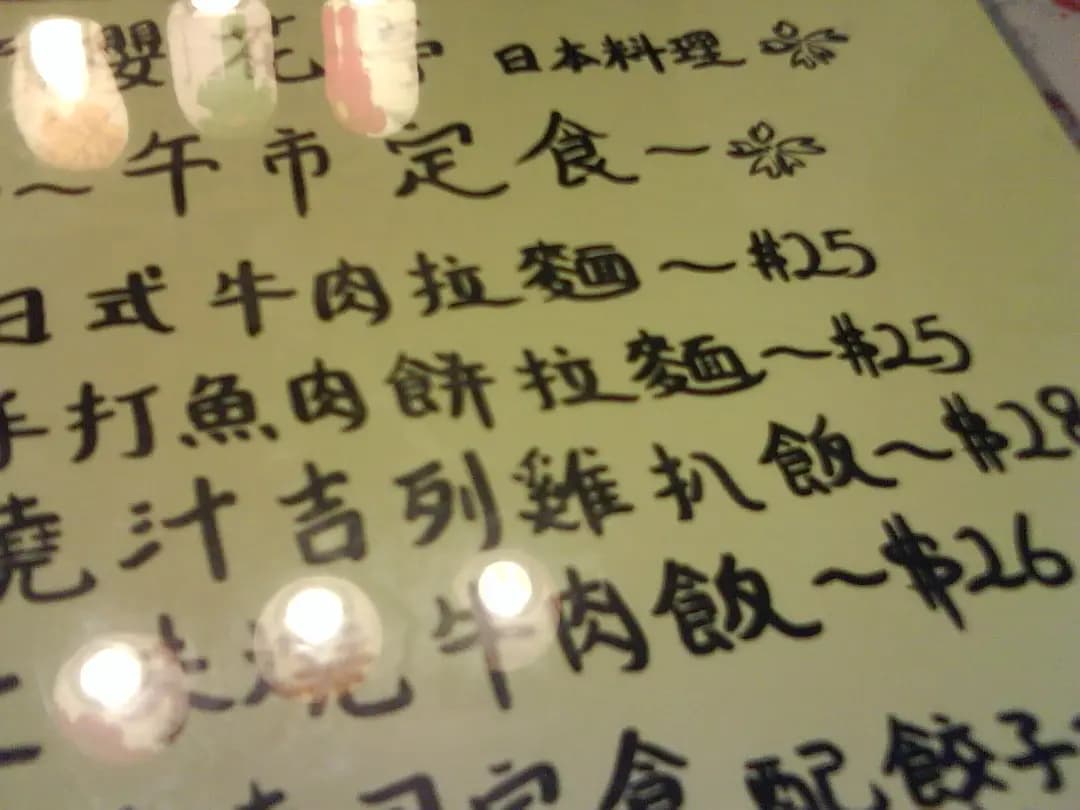 櫻花亭 日本料理
~午市定食~
日式牛肉拉麵~$25
手打魚肉餅拉麵~$25
燒汁吉列雞扒飯~$28
牛肉飯~$26
定食 配餃子